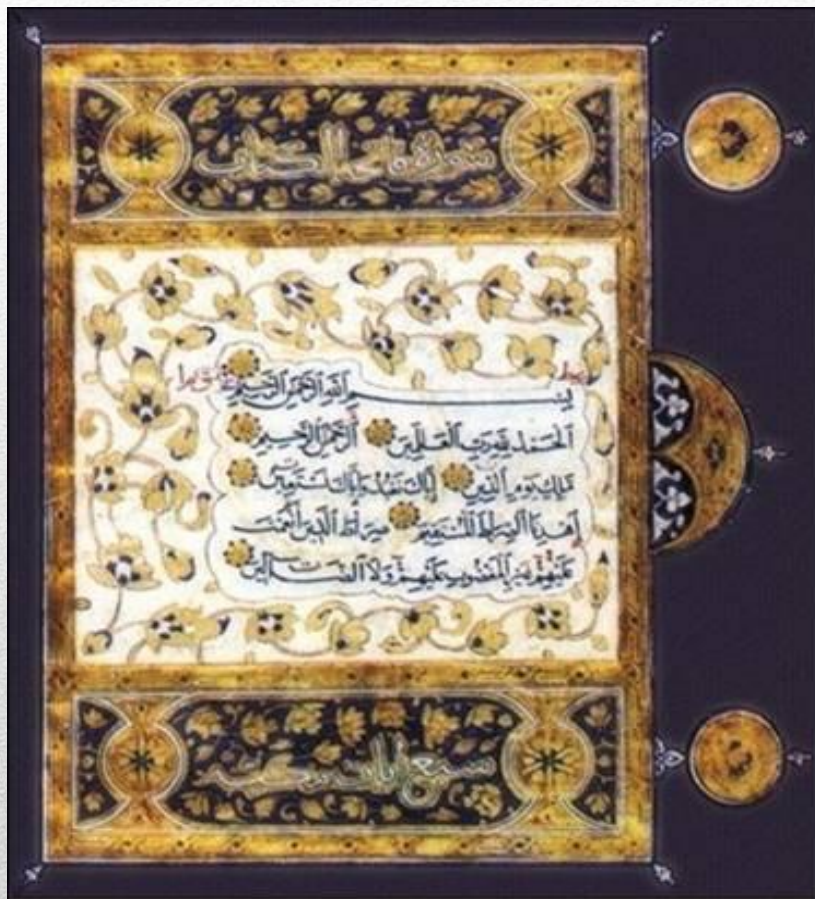 سورة فاتحة الكتاب
بِسْمِ ٱللَّهِ ٱلرَّحْمَٰنِ ٱلرَّحِيمِ
ٱلْحَمْدُ لِلَّهِ رَبِّ ٱلْعَٰلَمِينَ ٱلرَّحْمَٰنِ ٱلرَّحِيمِ
مَٰلِكِ يَوْمِ ٱلدِّينِ إِيَّاكَ نَعْبُدُ وَإِيَّاكَ نَسْتَعِينُ
ٱهْدِنَا ٱلصِّرَٰطَ ٱلْمُسْتَقِيمَ صِرَٰطَ ٱلَّذِينَ أَنْعَمْتَ
عَلَيْهِمْ غَيْرِ ٱلْمَغْضُوبِ عَلَيْهِمْ وَلَا ٱلضَّآلِّينَ
سبع ايات